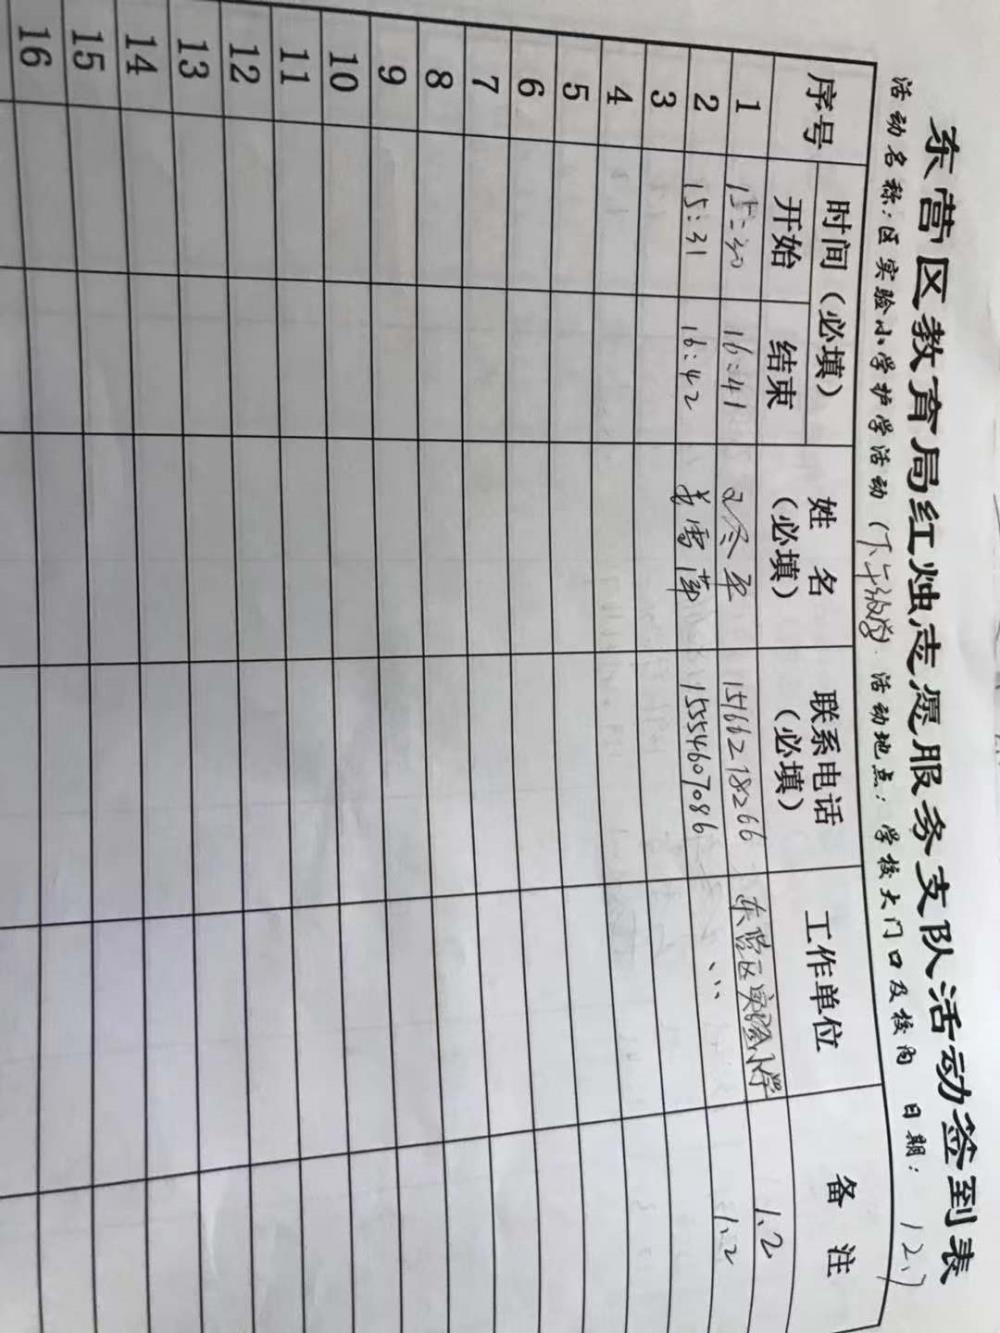 东营区教育局红烛志愿服务支队活动签到表
活动名称：区实验小学护学活动（下午放学） 活动地点：学校大门口及校内 日期： 12.7
序号 时间（必填） 姓 名（必填） 联系电话（必填） 工作单位 备 注
开始 结束
1 15:30 16:41 15166218266 东营区实验小学 1.2
2 15:31 16:42 15554607086 〃 1.2
3
4
5
6
7
8
9
10
11
12
13
14
15
16